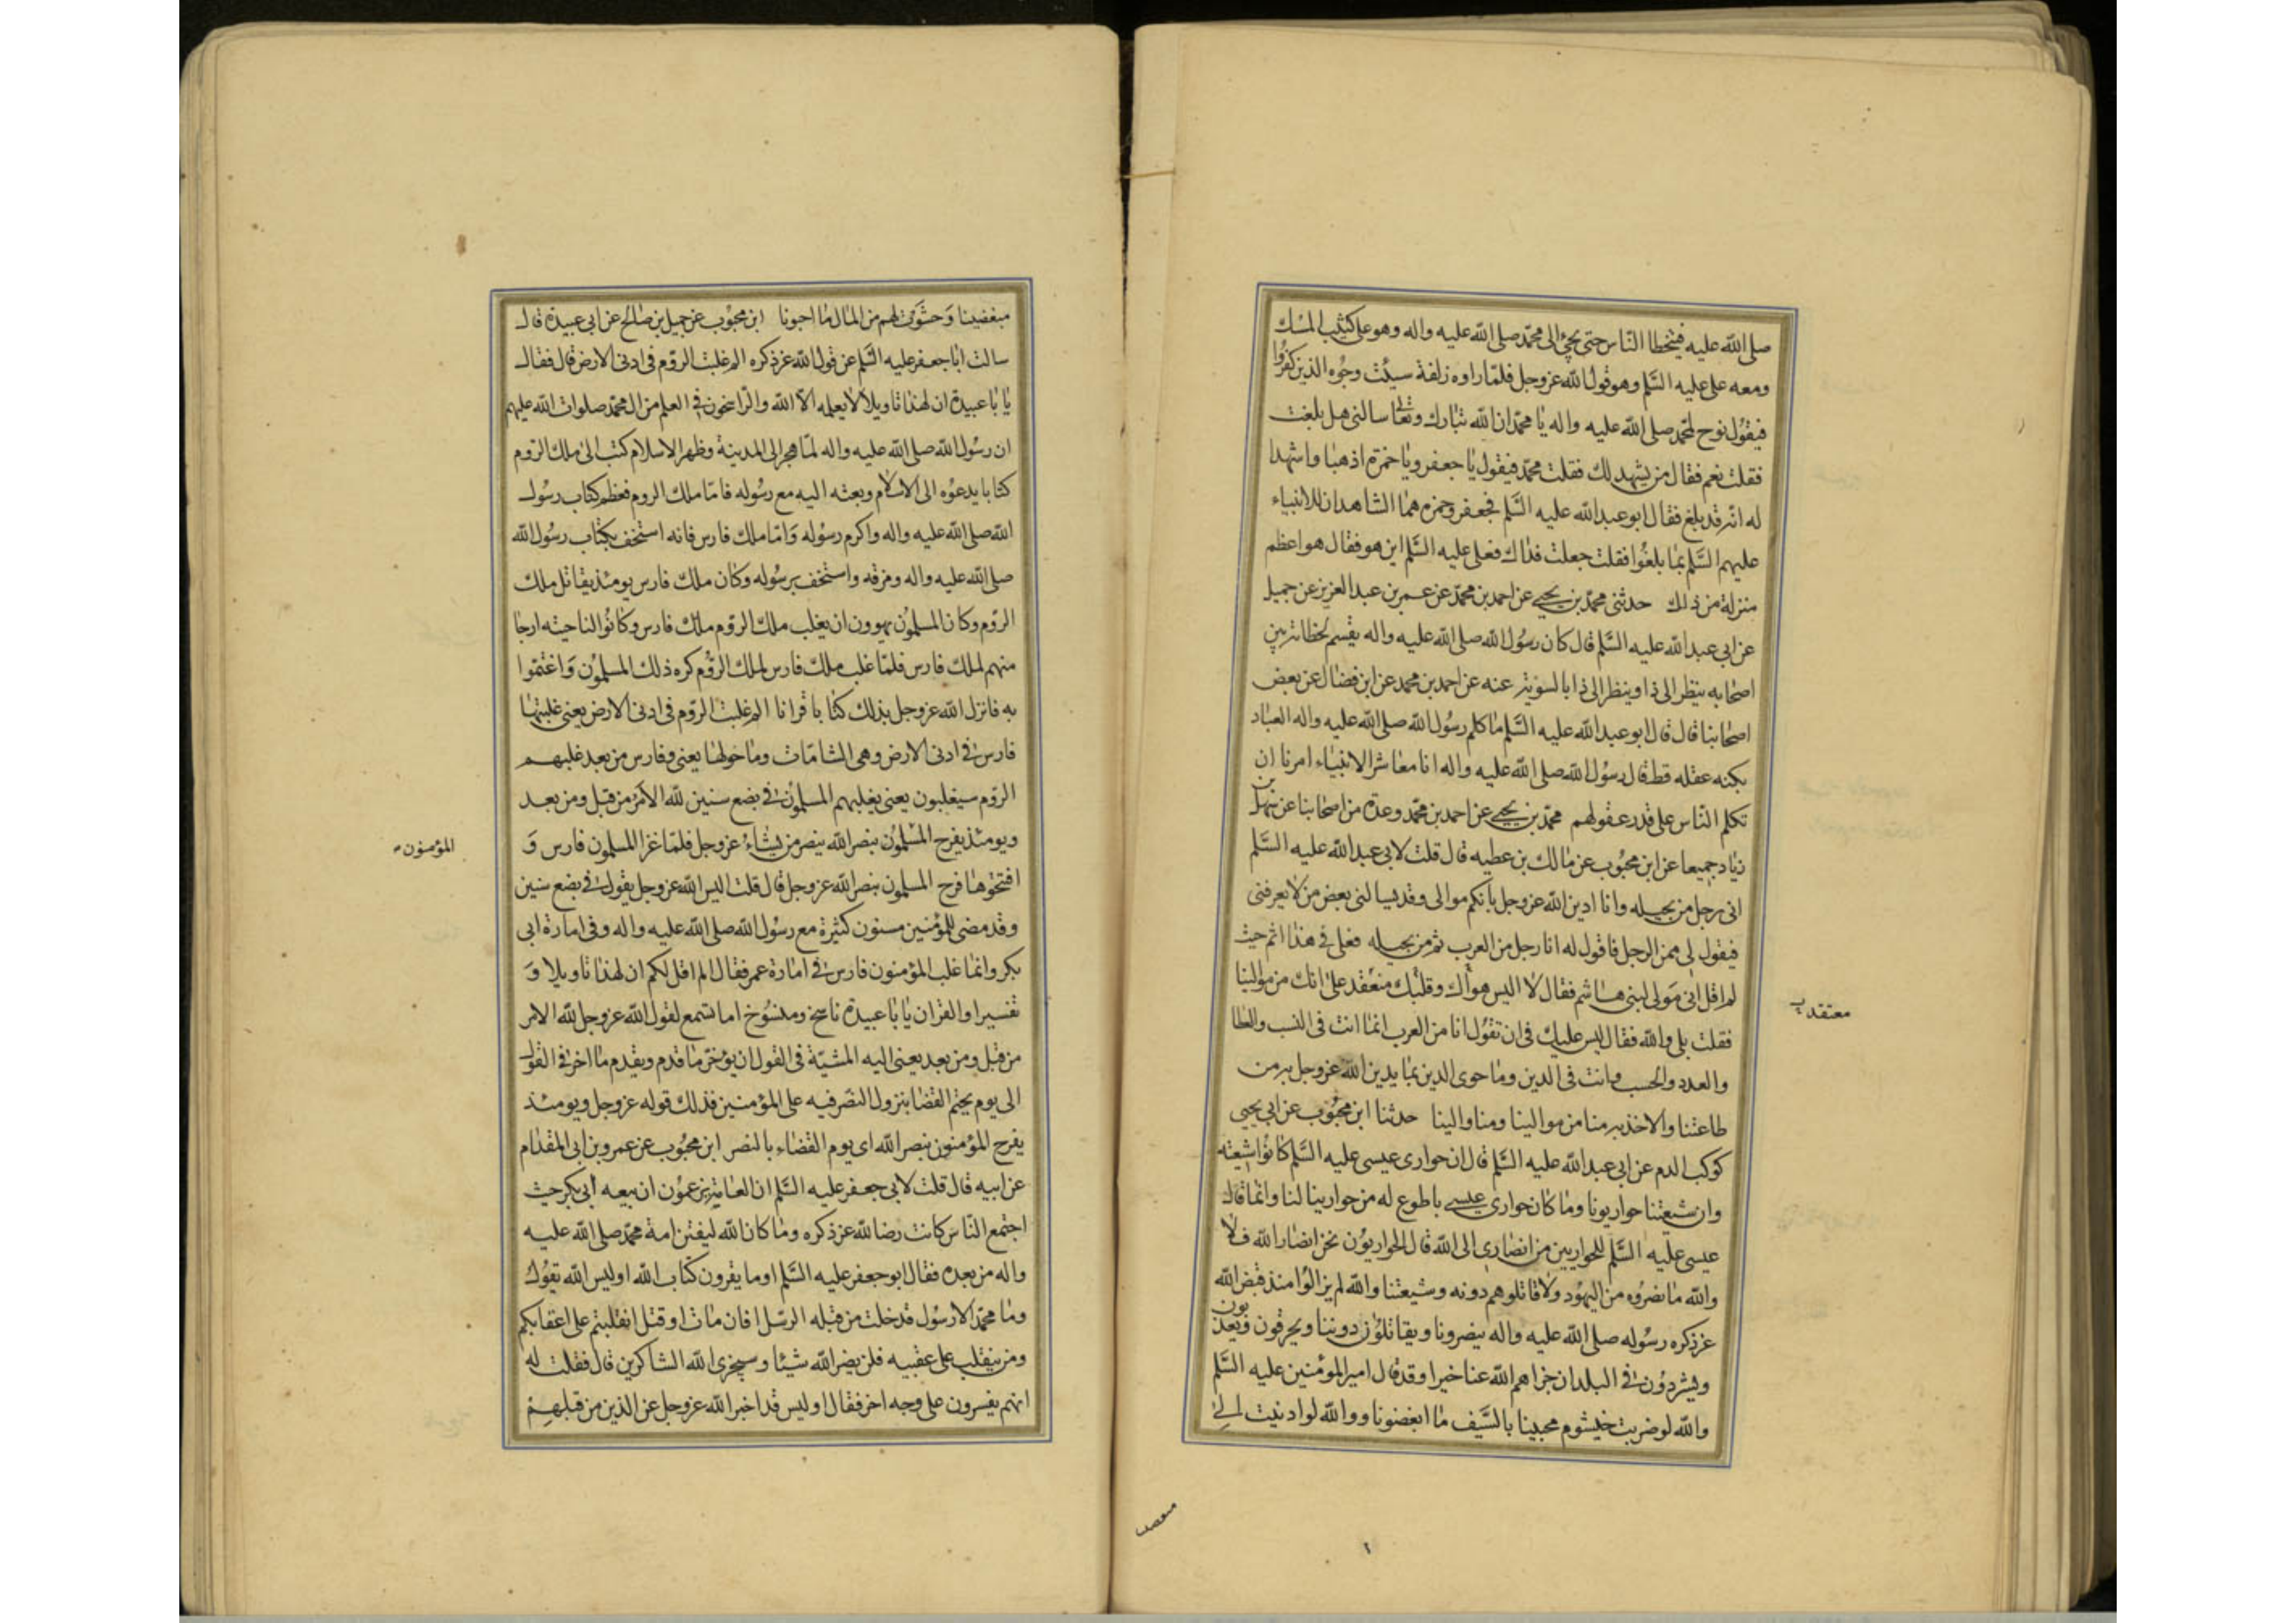 صلى الله عليه فيتخطا الناس حتى يجئ الى محمد صلى الله عليه واله وهو على كثيب المسك
ومعه على عليه السلم وهو قول الله عز وجل فلما راوه زلفة سيئت وجوه الذين كفروا
فيقول نوح لمحمد صلى الله عليه واله يا محمد ان الله تبارك وتعالى سالنى هل بلغت
فقلت نعم فقال من يشهد لك فقلت محمد فيقول يا جعفر ويا حمزة اذهبا واشهدا
له انه قد بلغ فقال ابو عبد الله عليه السلم فجعفر وحمزه هما الشاهدان للانبياء
عليهم السلم بما بلغوا فقلت جعلت فداك فعلى عليه السلم اين هو فقال هو اعظم
منزلة من ذلك حدثنى محمد بن يحيى عن احمد بن محمد عن عمر بن عبد العزيز عن جميل
عن ابى عبد الله عليه السلم قال كان رسول الله صلى الله عليه واله يقسم لحظاته بين
اصحابه ينظر الى ذا وينظر الى ذا بالسويه عنه عن احمد بن محمد عن ابن فضال عن بعض
اصحابنا قال قال ابو عبد الله عليه السلم ما كلم رسول الله صلى الله عليه واله العباد
بكنه عقله قط قال رسول الله صلى الله عليه واله انا معاشر الانبياء امرنا ان
تكلم الناس على قدر عقولهم محمد بن يحيى عن احمد بن محمد وعدة من اصحابنا عن سهل بن
زياد جميعا عن ابن محبوب عن مالك بن عطيه قال قلت لابى عبد الله عليه السلم
انى رجل من بجيله وانا ادين الله عز وجل بانكم موالى وقد يسالنى بعض من لا يعرفنى
فيقول لى ممن الرجل فاقول له انا رجل من العرب ثم من بجيله فعلى فى هذا اثم حيث
لم اقل انى مولى لبنى هاشم فقال لا اليس هواك وقلبك منعقد على انك من موالينا
معتقد
فقلت بلى والله فقال ليس عليك فى ان تقول انا من العرب انما انت فى النسب والعطا
والعدد والحسب وانت فى الدين وما حوى الدين بما يدين الله عز وجل به من
طاعتنا والاخذ به منا من موالينا ومنا والينا حدثنا ابن محبوب عن ابى يحيى
كوكب الدم عن ابى عبد الله عليه السلم قال ان حوارى عيسى عليه السلم كانوا شيعته
وان شيعتنا حواريونا وما كان حوارى عيسى باطوع له من حوارينا لنا وانما قال
عيسى عليه السلم للحواريين من انصارى الى الله قال الحواريون نحن انصار الله فلا
والله ما نصروه من اليهود ولا قاتلوهم دونه وشيعتنا والله لم يزالوا منذ قبض الله
عز ذكره رسوله صلى الله عليه واله ينصرونا ويقاتلون دوننا ويحرقون ويعذبون
ويشردون فى البلدان جزاهم الله عنا خيرا وقد قال امير المؤمنين عليه السلم
والله لو ضربت خيشوم محبينا بالسيف ما ابغضونا ووالله لو ادنيت الى
مبغضينا وحثوت لهم من المال ما احبونا ابن محبوب عن جميل بن صالح عن ابى عبيدة قال
سالت ابا جعفر عليه السلم عن قول الله عز ذكره الم غلبت الروم فى ادنى الارض قال فقال
يا با عبيدة ان لهذا تاويلا لا يعلمه الا الله والراسخون فى العلم من ال محمد صلوات الله عليهم
ان رسول الله صلى الله عليه واله لما هاجر الى المدينة وظهر الاسلام كتب الى ملك الروم
كتابا يدعوه الى الاسلام وبعثه اليه مع رسوله فاما ملك الروم فعظم كتاب رسول
الله صلى الله عليه واله واكرم رسوله واما ملك فارس فانه استخف بكتاب رسول الله
صلى الله عليه واله ومزقه واستخف برسوله وكان ملك فارس يومئذ يقاتل ملك
الروم وكان المسلمون يهوون ان يغلب ملك الروم ملك فارس وكانوا لناحيته ارجا
منهم لملك فارس فلما غلب ملك فارس لملك الروم كره ذلك المسلمون واغتموا
به فانزل الله عز وجل بذلك كتابا قرانا الم غلبت الروم فى ادنى الارض يعنى غلبتها
فارس فى ادنى الارض وهى الشامات وما حولها يعنى وفارس من بعد غلبهم
الروم سيغلبون يعنى يغلبهم المسلمون فى بضع سنين لله الامر من قبل ومن بعد
ويومئذ يفرح المسلمون بنصر الله ينصر من يشاء عز وجل فلما غزا المسلمون فارس و
المؤمنون
افتتحوها فرح المسلمون بنصر الله عز وجل قال قلت اليس الله عز وجل يقول فى بضع سنين
وقد مضى للمؤمنين سنون كثيرة مع رسول الله صلى الله عليه واله وفى امارة ابى
بكر وانما غلب المؤمنون فارس فى امارة عمر فقال الم اقل لكم ان لهذا تاويلا و
تفسيرا والقران يا با عبيدة ناسخ ومنسوخ اما تسمع لقول الله عز وجل لله الامر
من قبل ومن بعد يعنى اليه المشية فى القول ان يؤخر ما قدم ويقدم ما اخر فى القول
الى يوم يحتم القضا بنزول النصر فيه على المؤمنين فذلك قوله عز وجل ويومئذ
يفرح المؤمنون بنصر الله اى يوم القضاء بالنصر ابن محبوب عن عمرو بن ابى المقدام
عن ابيه قال قلت لابى جعفر عليه السلم ان العامة يزعمون ان بيعه ابى بكر حيث
اجتمع الناس كانت رضا لله عز ذكره وما كان الله ليفتن امة محمد صلى الله عليه
واله من بعده فقال ابو جعفر عليه السلم اوما يقرون كتاب الله اوليس الله يقول
وما محمد الا رسول قد خلت من قبله الرسل افان مات او قتل انقلبتم على اعقابكم
ومن ينقلب على عقبيه فلن يضر الله شيئا وسيجزى الله الشاكرين قال فقلت له
انهم يفسرون على وجه اخر فقال اوليس قد اخبر الله عز وجل عن الذين من قبلهم